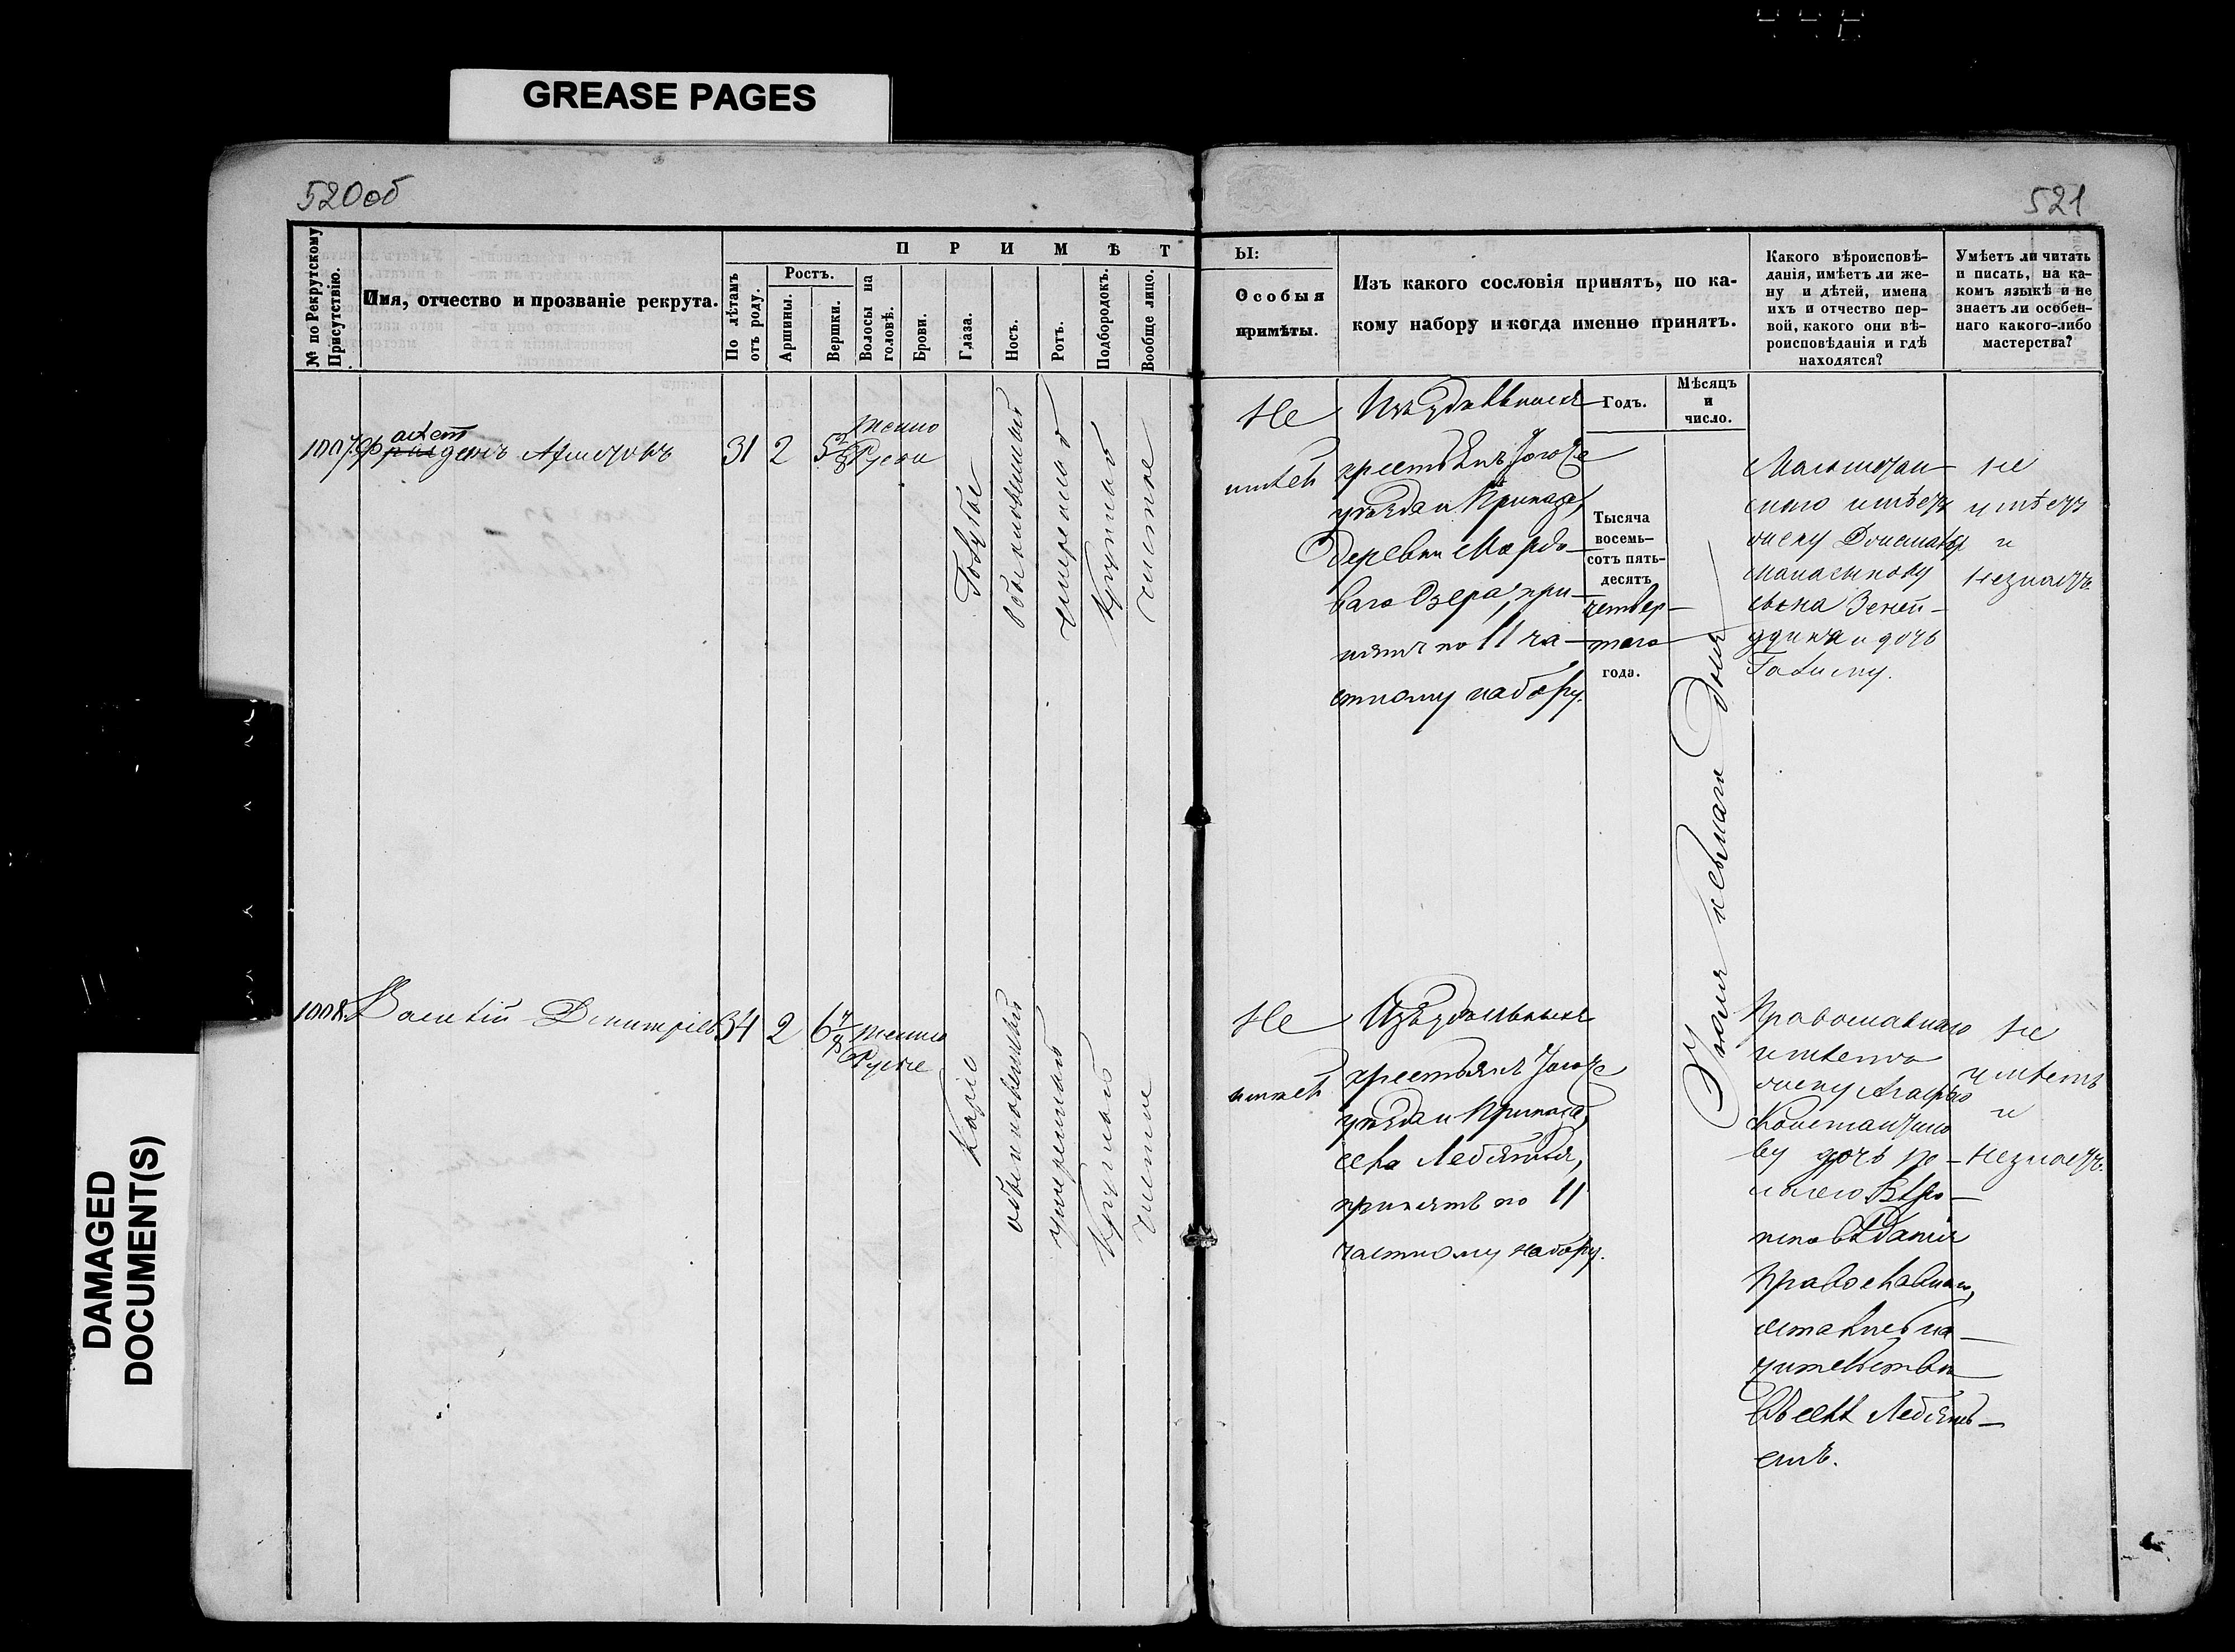 GREASE PAGES
520об
521
№ по Рекрутскому Присутствію.
Имя, отчество и прозваніе рекрута.
П Р И М Ѣ Т
По лѣтамъ отъ роду.
Ростъ.
Аршины.
Вершки.
Волосы на головѣ.
Брови.
Глаза.
Носъ.
Ротъ.
Подбородокъ.
Вообще лицо.
Ы:
Особыя
примѣты.
Изъ какого сословія принятъ, по ка-
кому набору и когда именно принятъ.
Какого вѣроисповѣ-
данія, имѣетъ ли же-
ну и дѣтей, имена
ихъ и отчество пер-
вой, какого они вѣ-
роисповѣданія и гдѣ
находятся?
Умѣетъ ли читать
и писать, на ка-
комъ языкѣ и не
знаетъ ли особен-
наго какого-либо
мастерства?
Годъ.
Мѣсяцъ
и
число.
1007.
31
2
5 2/8
темно
Русыя
Голубые
обыкновенный
умеренный
Круглый
чистое
Не
имѣетъ
Изъ удѣльныхъ
крестьянъ
уѣзда и Приказа,
деревни Мордо-
ваго Озера, при-
нятъ по 11 ча-
стному набору.
Тысяча
восемь-
сотъ пять-
десятъ
четвер-
таго
года.
Іюля седьмаго дня
имѣетъ
жену
сына
и дочь
не
умѣетъ
и
незнаетъ.
1008.
Василій Дмитріевъ
34
2
6 4/8
темно
Русые
Каріе
обыкновенный
умеренный
Круглый
чистое
Не
имѣетъ
Изъ удѣльныхъ
крестьянъ
уѣзда и Приказа,
села Лебяжья,
принятъ по 11
частному набору.
Православнаго
имѣетъ
жену
Константино
ву дочь
вѣро-
исповѣданія
православнаго,
жительства
въ селѣ Лебяжь-
емъ.
не
умѣетъ
и
незнаетъ.
DAMAGED
DOCUMENT(S)